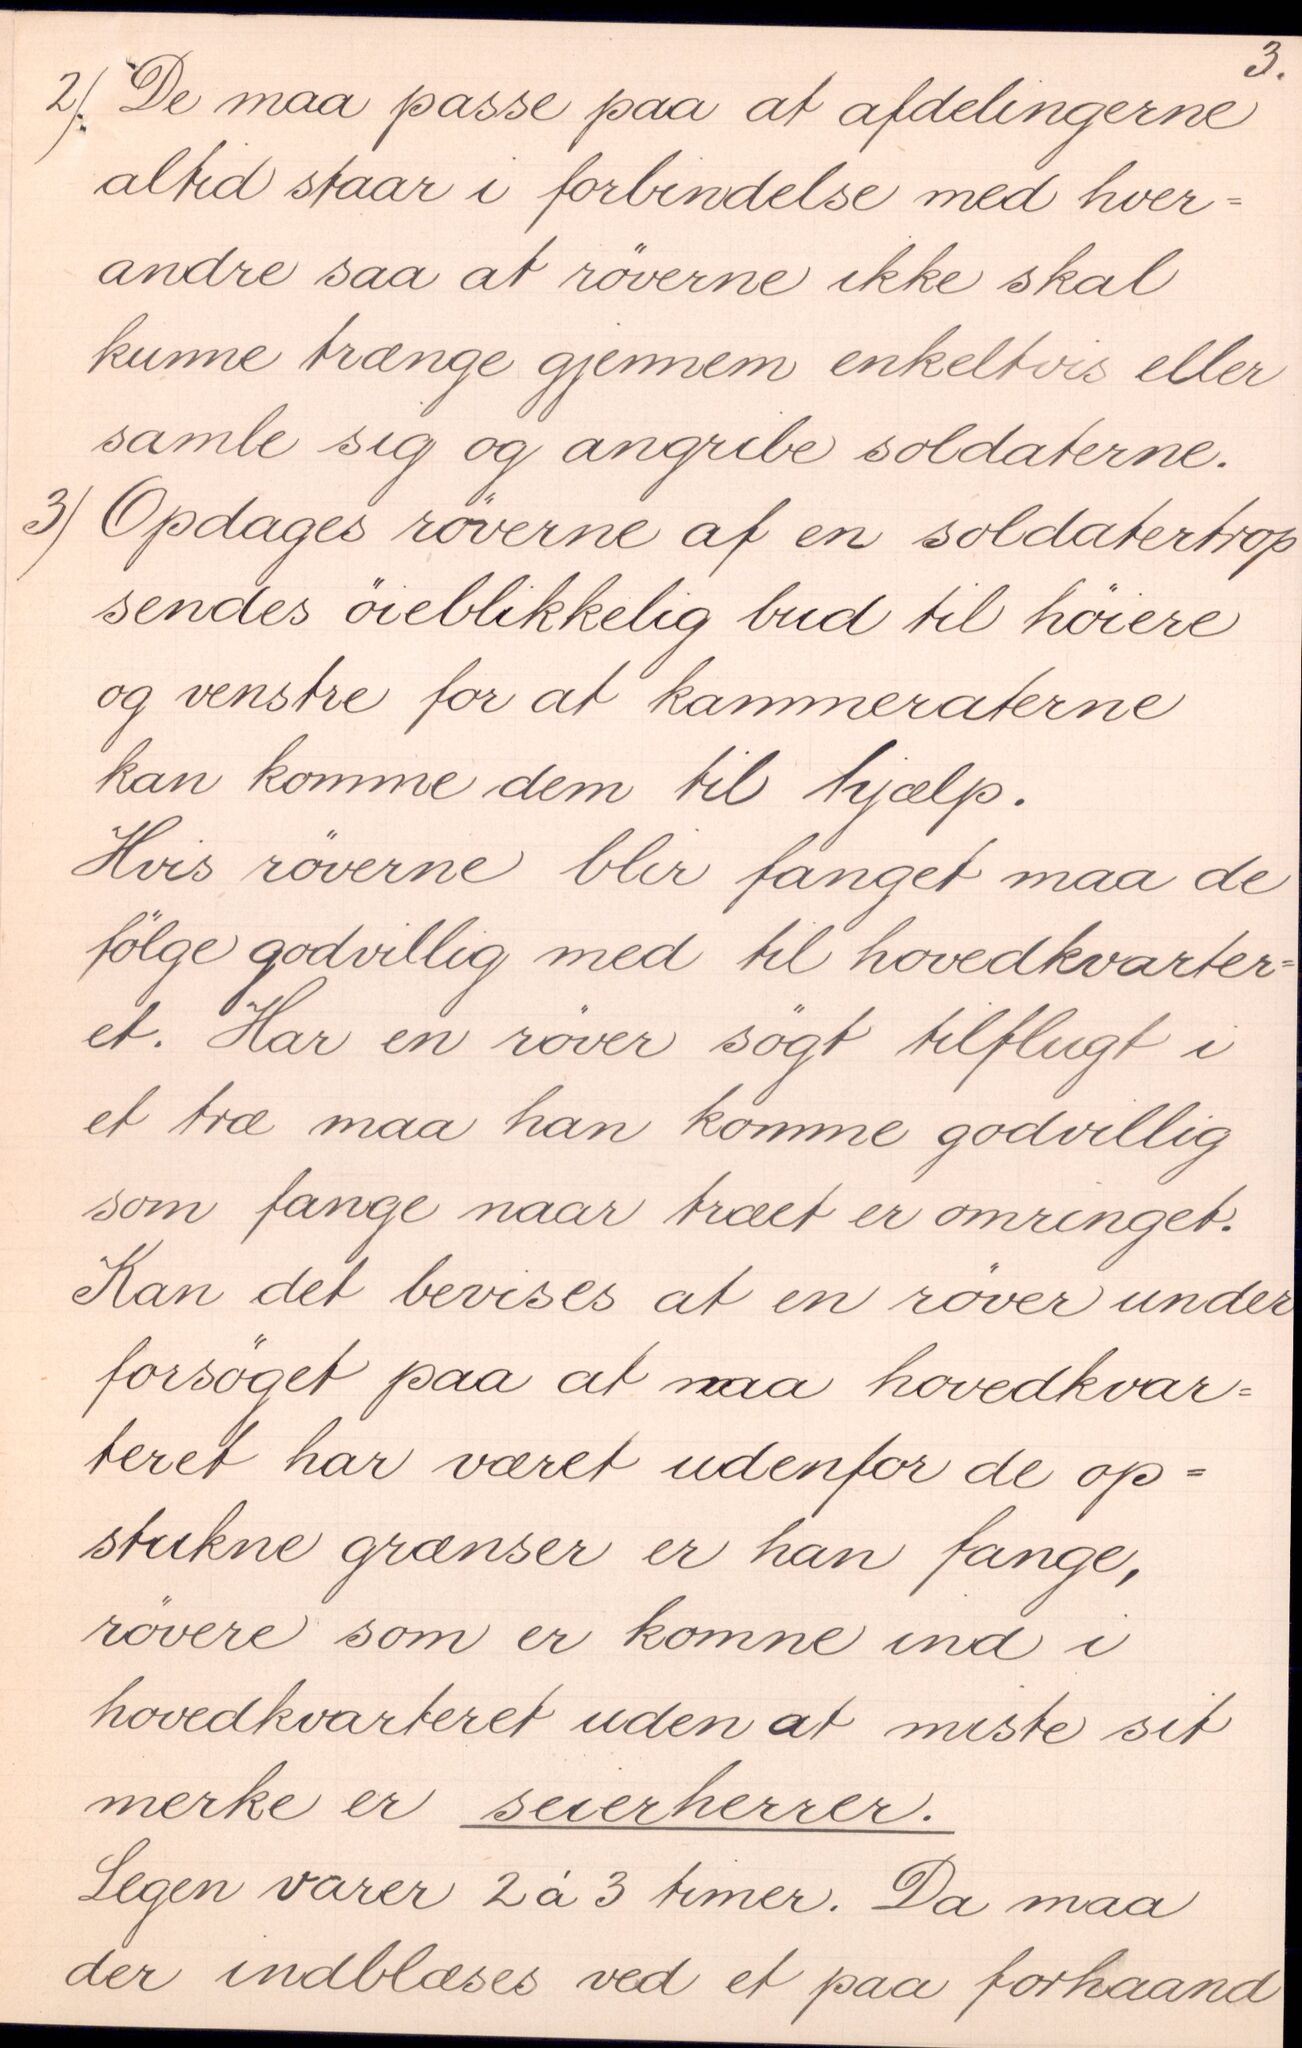 3.
2). De maa passe paa at afdelingerne
altid staar i forbindelse med hver=
andre saa at röverne ikke skal
kunne trænge gjennem enkeltvis eller
samle sig og angribe soldaterne.
3) Opdages röverne af en soldatertrop
sendes öieblikkelig bud til höiere
og venstre for at kammeraterne
kan komme dem til hjælp.
Hvis röverne blir fanget maa de
fölge godvillig med til hovedkvarter=
et. Har en röver sögt tilflugt i
et træ maa han komme godvillig
som fange naar træet er omringet.
Kan det bevises at en röver under
forsöget paa at naa hovedkvar=
teret har været udenfor de op=
stukne grænser er han fange,
rövere som er komne ind i
hovedkvarteret uden at miste sit
merke er seierherrer.
Legen varer 2 á 3 timer. Da maa
der indblæses ved et paa forhaand